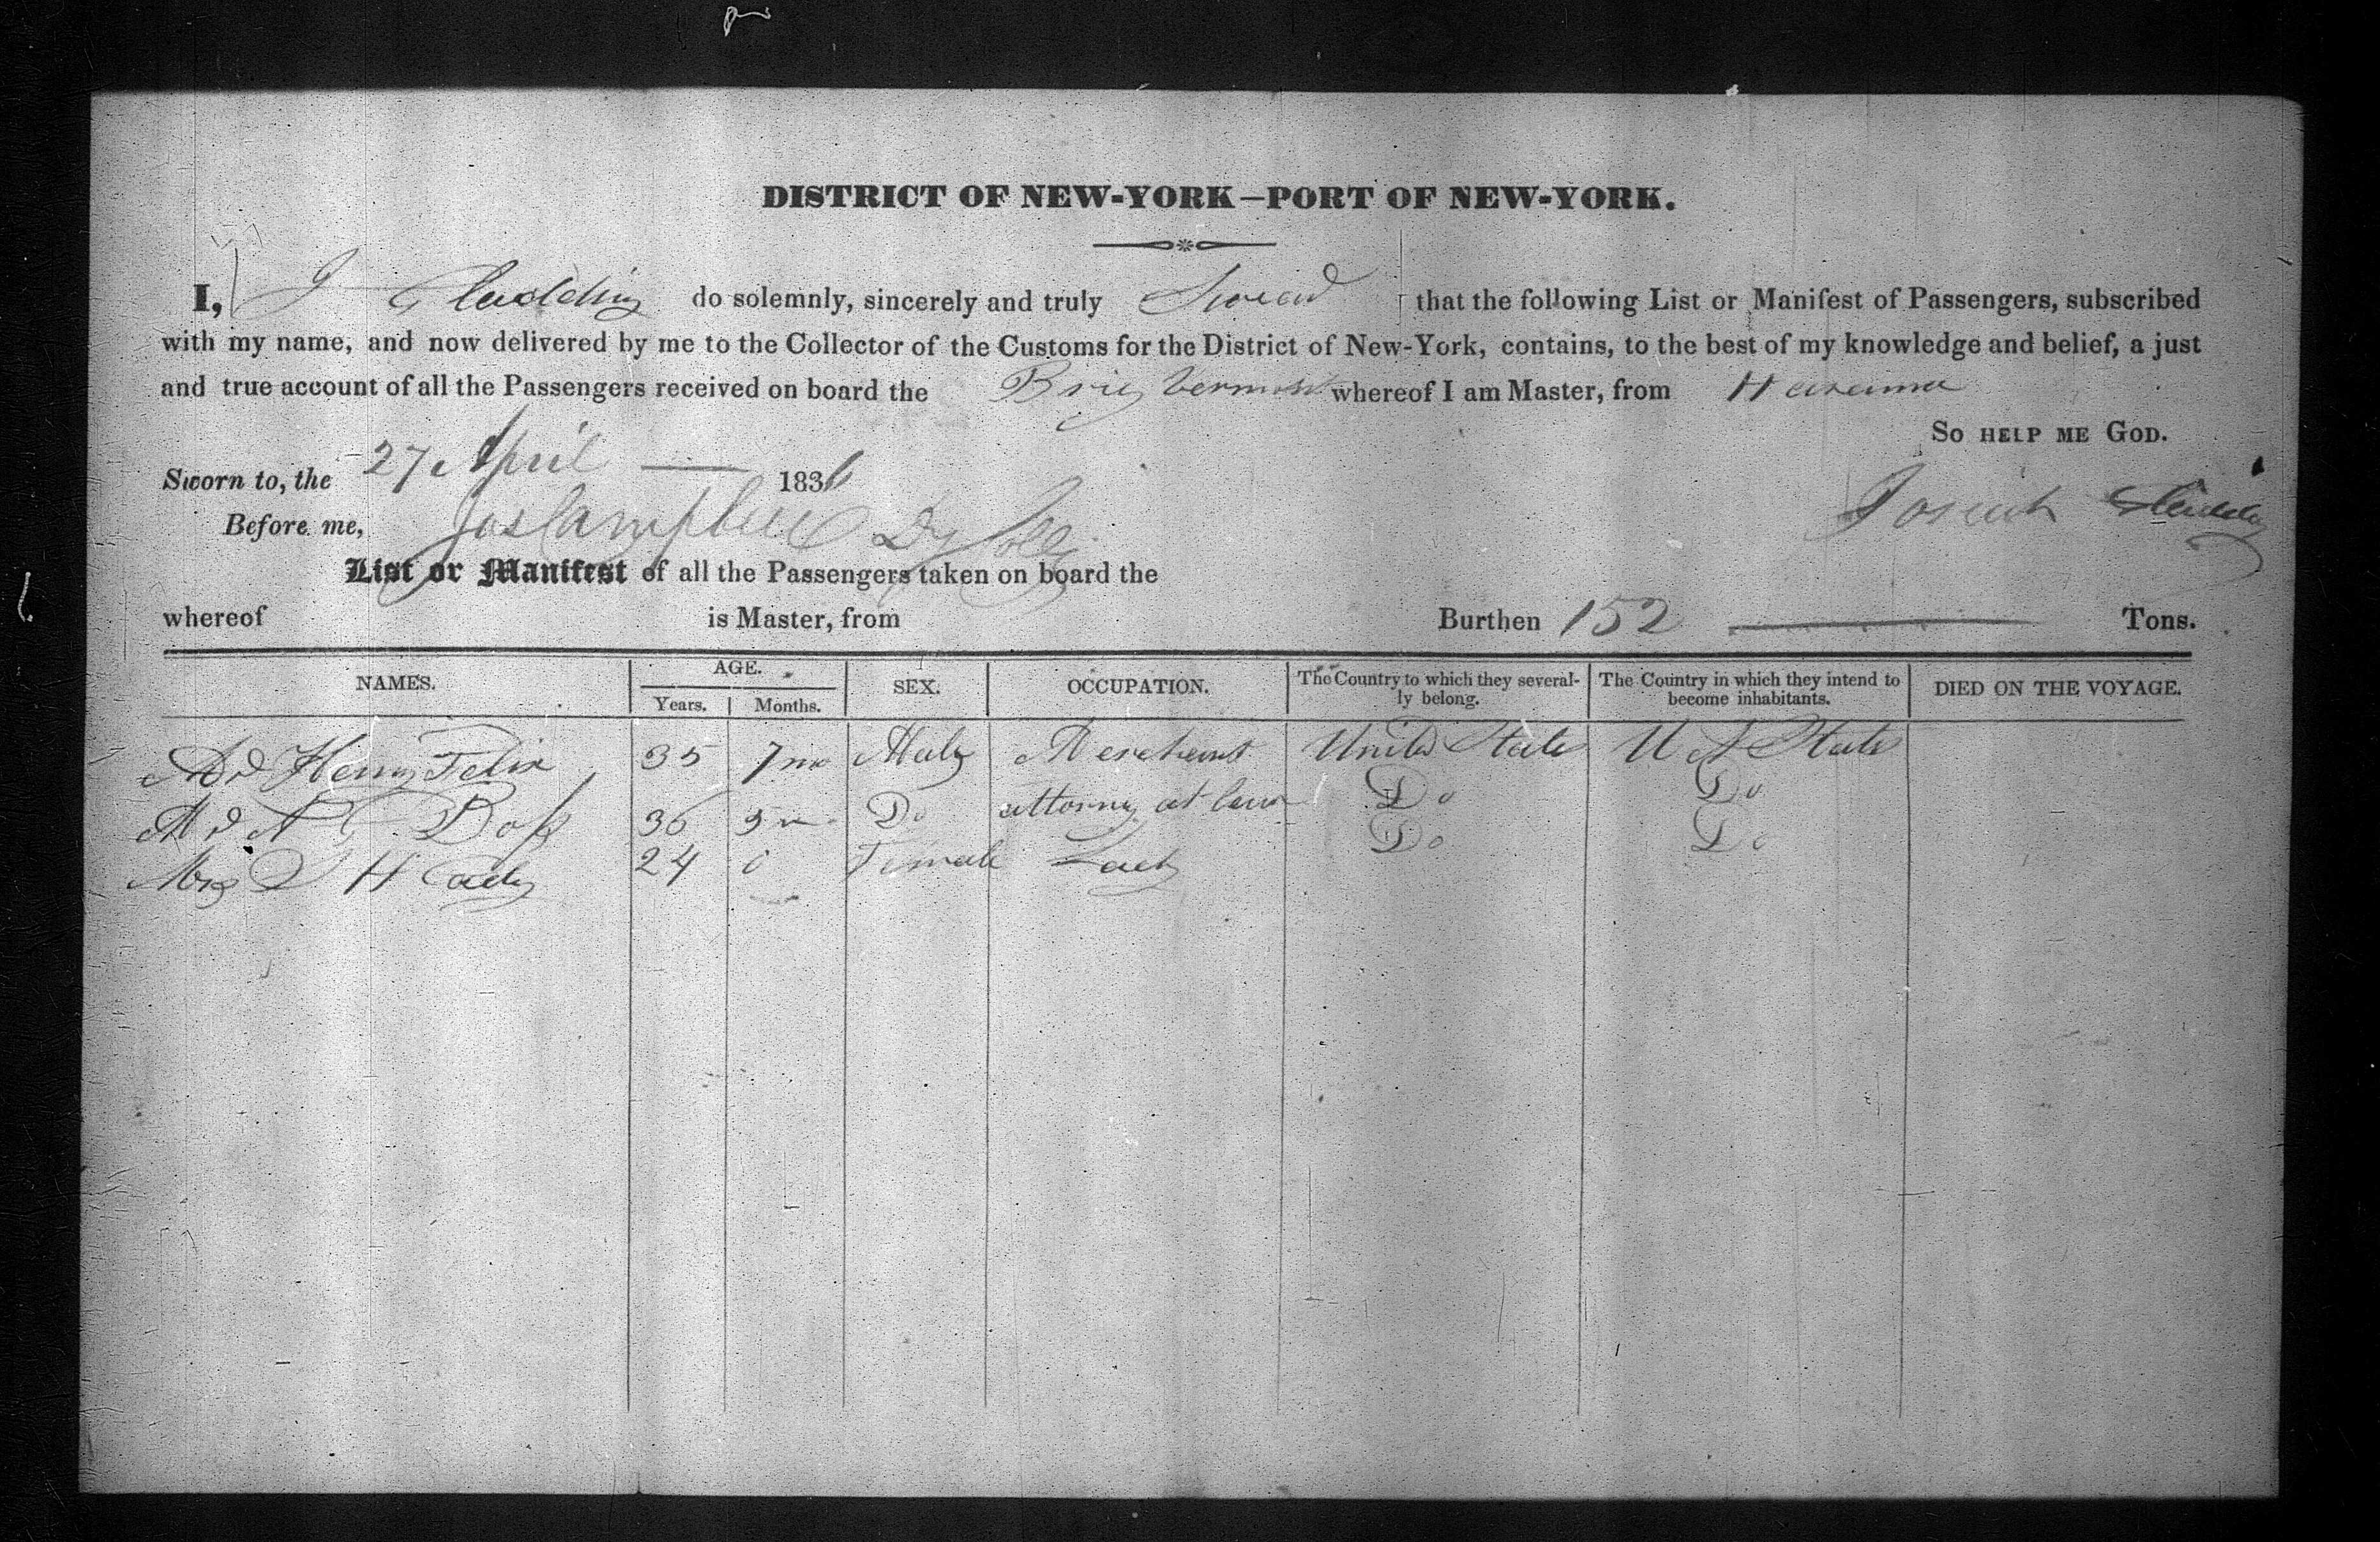 DISTRICT OF NEW-YORK—PORT OF NEW-YORK.
I, J Gladding do solemnly, sincerely and truly Swear that the following List or Manifest of Passengers, subscribed
with my name, and now delivered by me to the Collector of the Customs for the District of New-York, contains, to the best of my knowledge and belief, a just
and true account of all the Passengers received on board the Brig Vermont whereof I am Master, from Havanna
So HELP ME GOD.
Sworn to, the 27 April 1836
Joseph Gladding
Before me, Jas Campbell Dy Coll
List or Manifest of all the Passengers taken on board the
whereof is Master, from Burthen 152 Tons.
NAMES. AGE. Years. Months. SEX. OCCUPATION. The Country to which they several-ly belong. The Country in which they intend to become inhabitants. DIED ON THE VOYAGE.
Mr Henry Felix 35 7 m Male Merchant United States U States
Mr A Doss 36 5 m Do attorny at law Do Do
Mrs H Cady 24 Female Lady Do Do